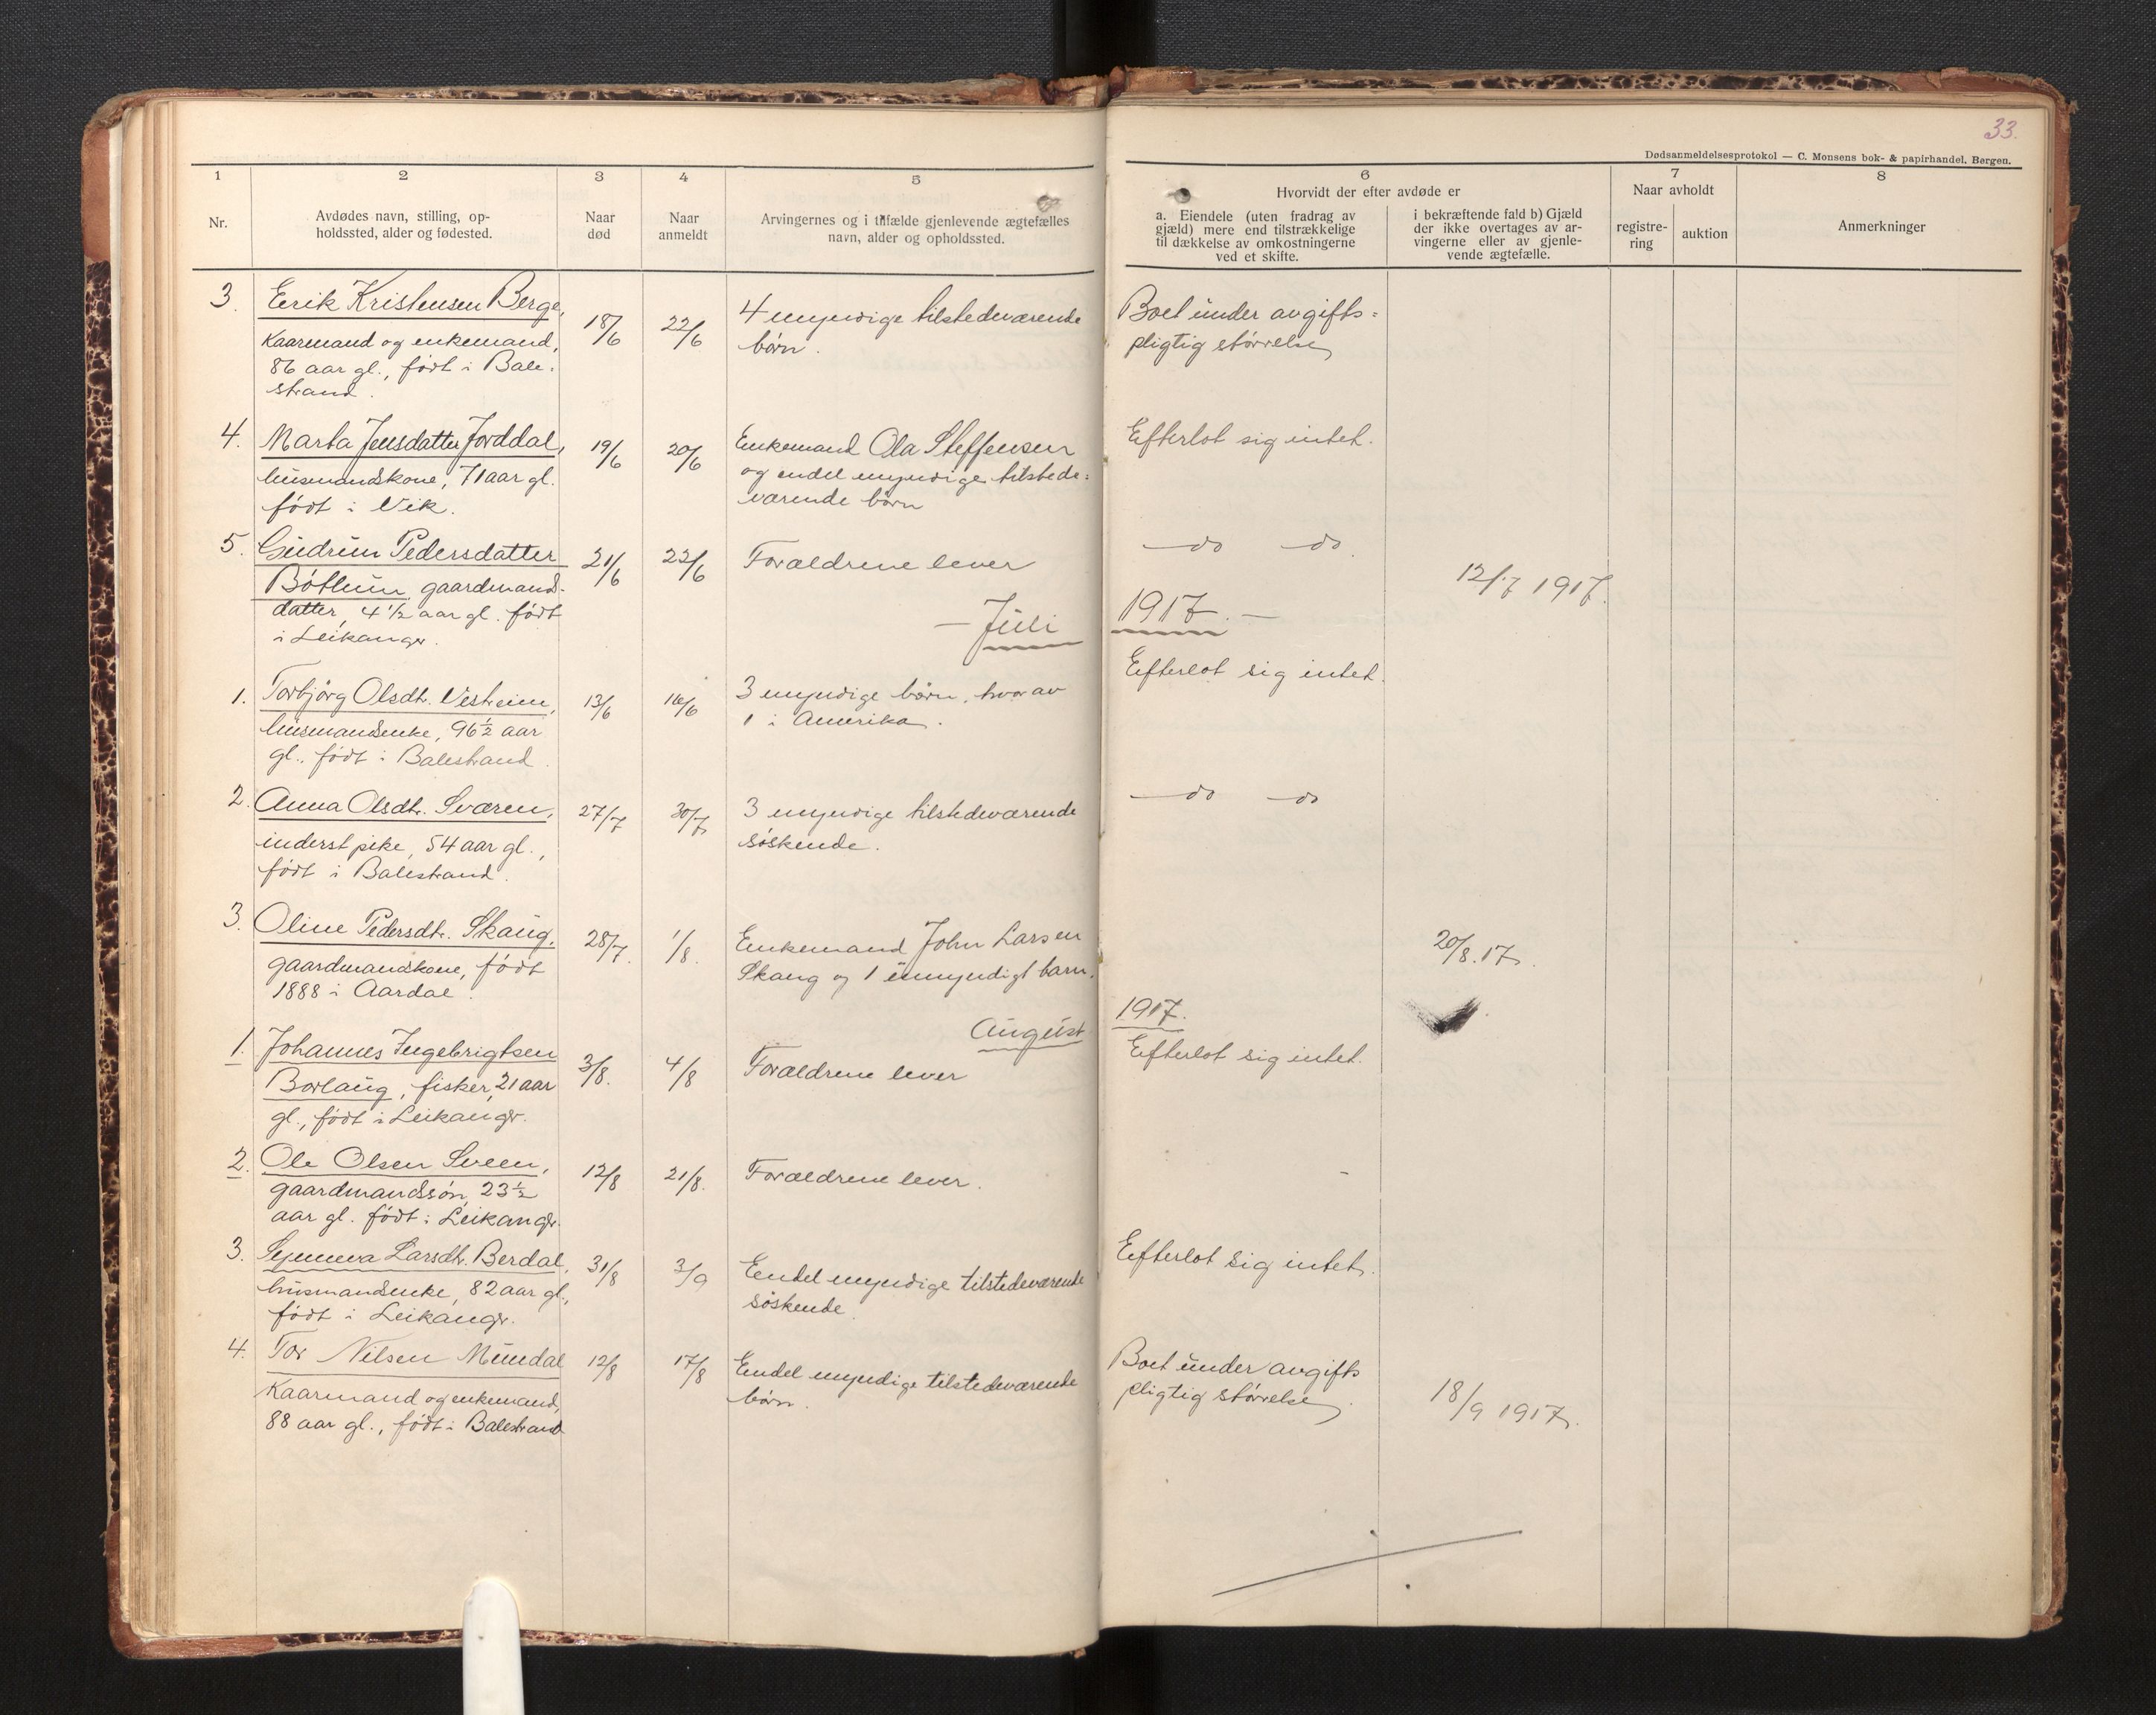 33.
Dødsanmeldelsesprotokol — C. Monsens bok- & papirhandel. Bergen.
1 2 3 4 5 6 7 8
Nr.
Avdødes navn, stilling, op-
holdssted, alder og fødested.
Naar
død
Naar
anmeldt
Arvingernes og i tilfælde gjenlevende ægtefælles
navn, alder og opholdssted.
Hvorvidt der efter avdøde er
a. Eiendele (uten fradrag av
gjæld) mere end tilstrækkelige
til dækkelse av omkostningerne
ved et skifte.
i bekræftende fald b) Gjæld
der ikke overtages av ar-
vingerne eller av gjenle-
vende ægtefælle.
Naar avholdt
registre-
ring
auktion
Anmerkninger
3 Eerik Kristensen Berge,
Kaarmand og enkemand,
86 aar gl., født i Bale-
strand.
18/6 22/6
4 myndige tilstedeværende
børn.
Boet under avgifts=
pligtig størrelse
4. Marta Jensdatter Jorddal,
husmandskone, 71 aar gl.
født i Vik.
19/6 20/6
Enkemand Ola Steffensen
og endel myndige tilstede=
værende børn
Efterlot sig intet.
5. Gudrun Pedersdatter
Bøthun, gaardmands-
datter, 4 1/2 aar gl. født
i Leikanger.
21/6 22/6
Forældrene lever
— do — do.
12/7 1917.
— Juli
1917. —
1. Torbjørg Olsdtr. Vestreim,
husmandsenke, 96 1/2 aar
gl., født i Balestrand.
13/6 16/6
3 myndige børn, hvorav
1 i Amerika.
Efterlot sig intet.
2. Anna Olsdtr. Sværen,
inderst pike, 54 aar gl.,
født i Balestrand.
27/7 30/7
3 myndige tilstedeværende
søskende.
— do — do
3. Oline Pedersdtr. Skaug,
gaardmandskone, født
1888 i Aardal.
28/7. 1/8.
Enkemand John Larsen
Skaug og 1 umyndigt barn.
20/8.17.
August
1917.
1. Johannes Ingebrigtsen
Borlaug, fisker, 21 aar
gl., født i Leikanger.
3/8. 4/8
Forældrene lever
Efterlot sig intet.
2. Ole Olsen Sveen,
gaardmandssøn, 23 1/2
aar gl. født i Leikanger.
12/8 21/8.
Forældrene lever.
-
3. Synneva Larsdtr. Berdal,
husmandsenke, 82 aar gl.,
født i Leikanger.
31/8 3/9
Eendel myndige tilstedeværende
søskende.
Efterlot sig intet.
4. Tor Nilsen Mundal
Kaarmand og enkemand,
88 aar gl., født i Balestrand
12/8 17/8
Eendel myndige tilstedeværende
børn.
Boet under avgifts
pligtig størrelse.
18/9 1917.